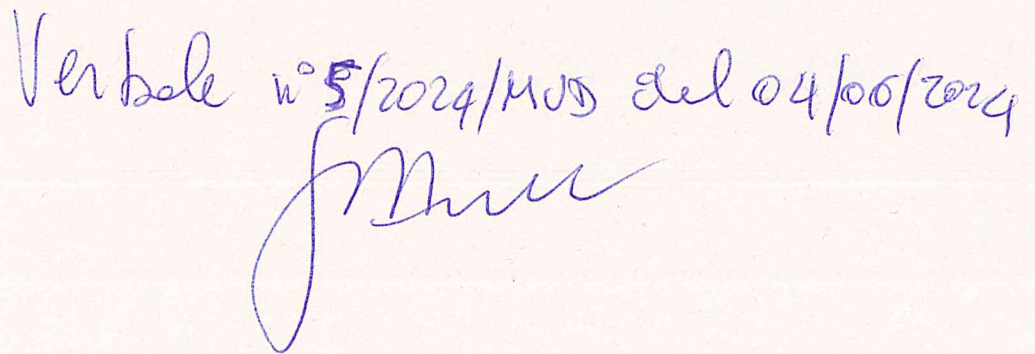 Verbale n° 5/2024/MVD del 04/06/2024